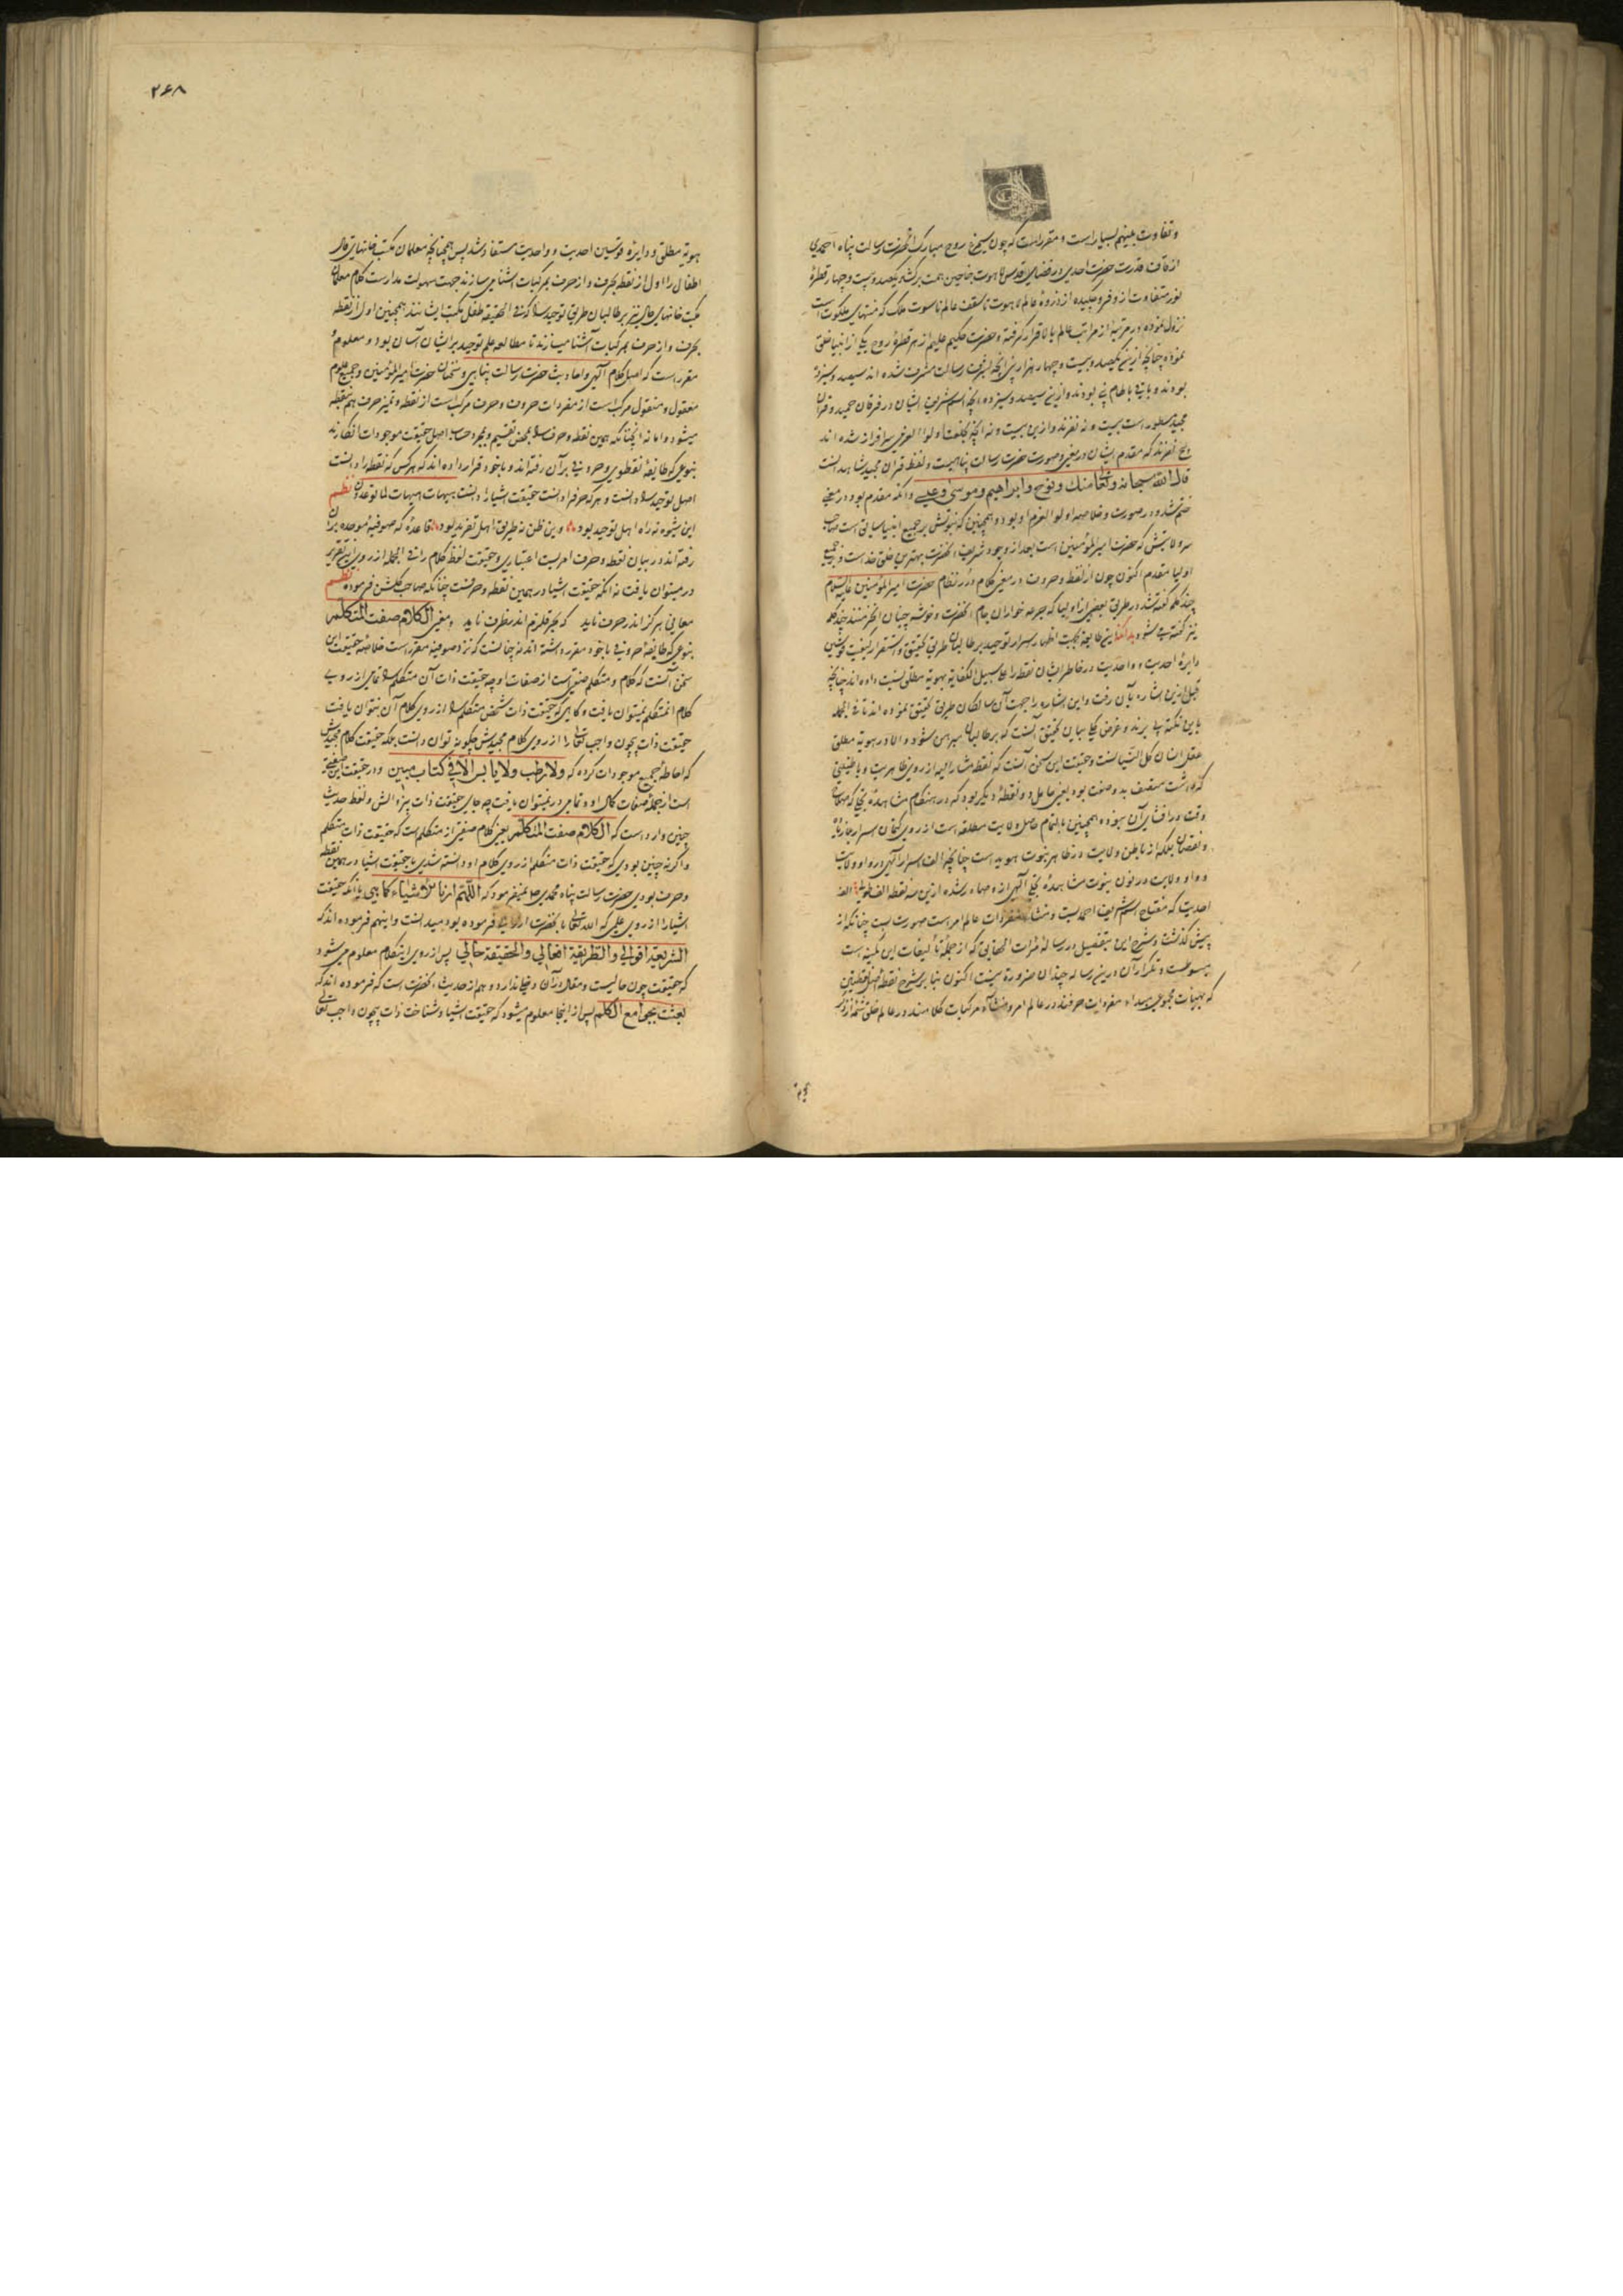 و تفاوت بینهم بسیار است و مقرر است که چون سیمرغ روح مبارک آنحضرت رسالت پناه احمدی
از قاف قدرت حضرت احدی در فضای قدس لاهوت جناحین همت برگشاد یکصد و بیست و چهار قطرهٔ
نور متفاوت از و فرو چکیده از ذروهٔ عالم لاهوت تا سقف عالم ناسوت ملک که منتهای ملکوت است
نزول نموده در مرتبهٔ از مراتب عالم بالا قرار گرفته و حضرت حکیم علیم از هر قطرهٔ روح یکی از انبیا خلق
نموده چنانچه ازین یکصد و بیست و چهار هزار پنی آنچه بشرف رسالت مشرف شده اند سیصد و سیزده
بودند و باقی بودند و ازین سیصد و سیزده آنچه اسم شریف ایشان در فرقان حمید و قرآن
مجید مسطور است بیست و نه نفرند و ازین بیست و نه آنچه بخلعت اولو العزمی سرافراز شده اند
پنج نفرند که مقدم ایشان در معنی و صورت حضرت رسالت پناهیست و لفظ قرآن مجید شاهد است
قال الله سبحانه وتعا منك ونوح وابراهيم وموسى وعيسى و آنکه مقدم بود در معنی
ختم شد در صورت و خلاصهٔ اولوا العزم او بود و همچنین که نبوتش بر جمیع انبیا سابق است صاحب
سر ولایتش که حضرت امیر المؤمنین است بعد از وجود شریف آنحضرت بهترین خلق خداست و بر جمیع
اولیا مقدم اکنون چون از لفظ و حروف در معنی کلام درر نظام حضرت امیر المؤمنین علیه السلام
چند کلمه گفته شد در طریق بعضی از اولیا که جرعه خواران جام آنحضرت و خوشه چینان آنخرمنند چند کلمه
نیز گفته می شود بدانکه این طایفه بجهت اظهار اسرار توحید بر طالبان طریق تحقیق و استقرار کیفیت قوسین
دایرهٔ احدیت و واحدیت در خاطر ایشان نقطه را علی سبیل الکفایه بهویة مطلق نسبت داده اند چنانچه
قبل ازین اشاره بآن رفت و این اشاره را جهت آن سالکان طریق تحقیق نموده اند تا فی الجمله
باین نکته پی برند و غرض کلی بیان تحقیق آنست که بر طالبان مبرهن شود و الا در هویة مطلق
عقل انسان کل اللسانست و حقیقت این سخن آنست که نقطه مشار الیه از روی ظاهریت و باطنیتی
که داشت متصف بدو صفت بود یعنی حامل دو نقطهٔ دیگر بود که در هنگام مشاهدهٔ تجلی که مهمات
وقت در افشای آن نبوده و همچنین با تمام حاصل ولایت مطلقه است از روی کتمان اسرار نه از باب
و نقصان بلکه از باطن ولایت در ظاهر نبوت هویداست چنانچه الف اسرار الهی در واو ولایت
و واو ولایت در نون نبوت مشاهدهٔ تجلی الهی ازو صادر شده ازین سه نقطه الف قولهٔ الف
احدیت که مفتاح اسم شریف احمدیست و منشاء مفردات عالم امر است صورت بست چنانکه از
پیش گذشت و شرح این بتفصیل در رسالهٔ مرآت الحقایق که از جملهٔ تألیفات این کمینه است
مبسوطست و تکرار آن درین رساله چندان ضرورة نیست اکنون بنا بر شرح نقطه اصل
که بهیئات مجموعی مبداء مفردات حرفند در عالم امر و منشاء مرکبات کلامند در عالم خلق
۲۶۸
هویة مطلق و دایرهٔ قوسین احدیت و واحدیت مستفاد شد پس همچنانچه معلمان مکتب خانهای قال
اطفال را اول از نقطه بحرف و از حرف بمرکبات اشنا می سازند جهت سهولت مدارست کلام معلمان
مکتب خانهای حال نیز بر طالبان طریق توحید را که فی الحقیقه طفل مکتب ایشانند همچنین اول از نقطه
بحرف و از حرف بمرکبات آشنا میسازند تا مطالعهٔ علم توحید بر ایشان آسان بود و معلوم و
مقرر است که اصل کلام الهی و احادیث حضرت رسالت پناهی و سخنان حضرت امیر المؤمنین و جمیع علوم
معقول و منقول مرکب است از مفردات حروف و حرف مرکب است از نقطه و تمیز حرف هم بنقطه
میشود و اما نه آنچنانکه همین نقطه و حرف را بمحض تقسیم و بمجرد حساب اصل حقیقت موجودات انگارند
بنوعی که طایفهٔ نقطوی و حروفی بر آن رفته اند و با خود قرار داده اند که هر کس که نقطه را دانست
اصل توحید را دانست و هر که حرف را دانست حقیقت اشیا را دانست هیهات هیهات لما توعدون نظم
این شیوه نه راه اهل توحید بود وین ظن نه طریق اهل تفرید بود قاعدهٔ که صوفیهٔ موحده بر آن
رفته اند در بیان نقطه و حرف امریست اعتباری و حقیقت لفظ کلام را فی الجمله از روی این تقریر
در میتوان یافت نه آنکه حقیقت اشیا در همین نقطه و حرفست چنانکه صاحب گلشن فرموده نظم
معانی هرگز اندر حرف ناید که بحر قلزم اندر ظرف ناید و معنی الکلام صفت المتکلم
بنوعی که طایفهٔ حروفی با خود مقرر داشته اند نه چنانست که نزد صوفیه مقرر است خلاصه حقیقت این
سخن آنست که کلام و متکلم صفتی است از صفات او چه حقیقت ذات آن متکلم را تمامی از روی
کلام آنمتکلم نمیتوان یافت و گاهی که حقیقت ذات شخص متکلم را از روی کلام آن نتوان یافت
حقیقت ذات بیچون واجب تعالی را از روی کلام مجیدش چگونه توان دانست بلکه حقیقت کلام مجیدش
که احاطهٔ جمیع موجودات کرده که ولا رطب ولا یابس الا فی کتاب مبین و در حقیقت این صفتی
است از جمله صفات کمال او و تمامی در نمیتوان یافت چه جای حقیقت ذات بی زوالش و لفظ حدیث
چنین وارد است که الکلام صفت المتکلم یعنی کلام صفتی از متکلم است که حقیقت ذات متکلم
و اگر نه چنین بودی که حقیقت ذات متکلم از روی کلام او دانسته شدی یا حقیقت اشیا در همین نقطه
و حرف بودی حضرت رسالت پناه محمدی صلعم نمیفرمود که اللهم ارنا الاشیاء کما هی با آنکه حقیقت
اشیا را از روی علمی که الله تعالی بآنحضرت ارزانی فرموده بود میدانست و اینهم فرموده اند که
الشریعة اقوالی والطریقة افعالی والحقیقة حالی پس از روی اینکلام معلوم می شود
که حقیقت چون حالیست و مقال در آن دخلی ندارد و هم از حدیث آنحضرت است که فرموده اند که
بعثت بجوامع الکلم پس از اینجا معلوم میشود که حقیقت اشیا و شناخت ذات بیچون واجب تعالی